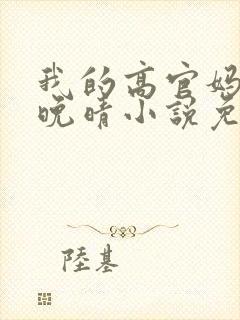 我的高官妈
晚晴小说免
陸基